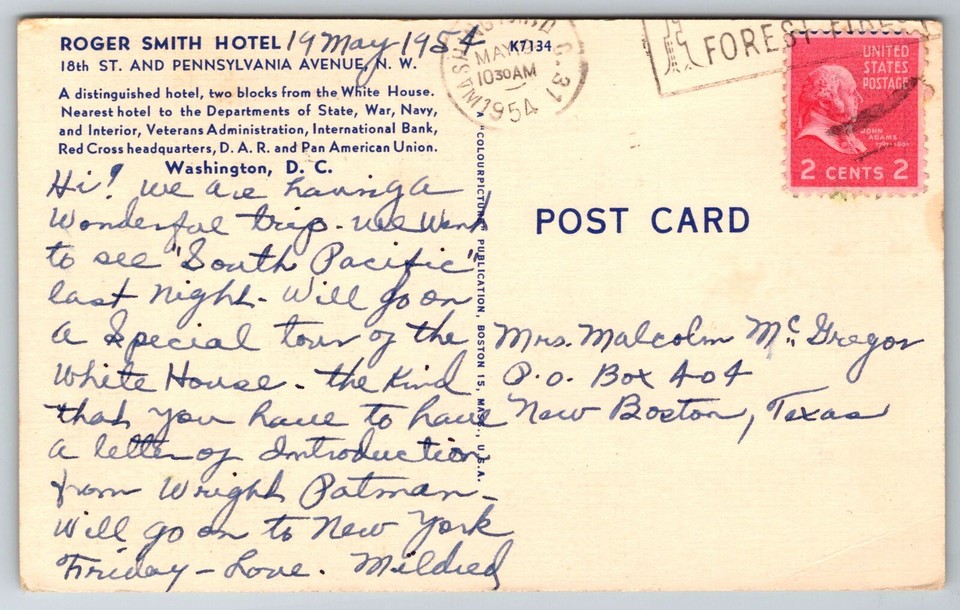 ROGER SMITH HOTEL 19 May 1954
18th ST. AND PENNSYLVANIA AVENUE, N. W.
A distinguished hotel, two blocks from the White House.
Nearest hotel to the Departments of State, War, Navy,
and Interior, Veterans Administration, International Bank,
Red Cross headquarters, D. A. R. and Pan American Union.
Washington, D. C.
Hi! We are having a
Wonderful trip. We Went
to see "South Pacific"
last night. Will go on
a Special tour of the
White House. the Kind
that you have to have
a letter of Introduction
from Wright Patman –
Will go on to New York
Friday – Love. Mildred
K7134
A "COLOURPICTURE" PUBLICATION, BOSTON 15, MASS., U.S.A.
WASHINGTON D.C. 31
MAY 19
1030 AM
1954
FOREST FIRES
UNITED
STATES
POSTAGE
JOHN
ADAMS
2 CENTS 2
POST CARD
Mrs. Malcolm Mc. Gregor
P.O. Box 404
New Boston, Texas